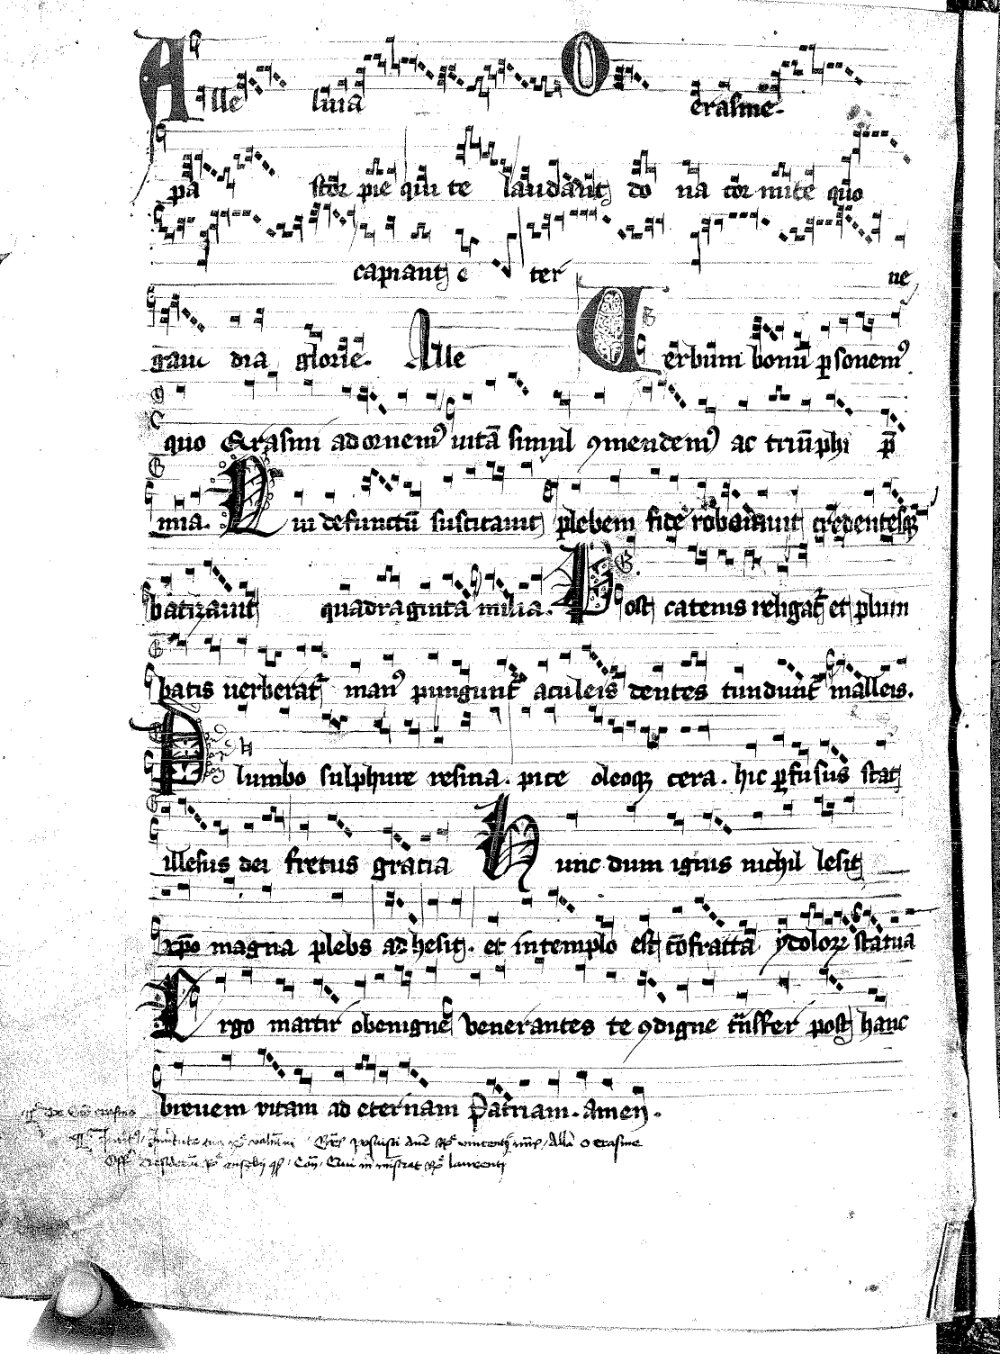 Alle luia O erasme.
pa stor pie qui te laudant do na cor mite quo
capiant e ter ne
gau dia glorie. Alle Verbum bonū ꝑsonemꝰ
quo Erasmi ad ornemꝰ uitā simul ꝯmendemꝰ ac triūphi p̄
mia. Qui defunctū suscitauit plebem fide roborauit credentesqꝫ
batizauit quadraginta milia. Post catenis religat̄ et plum
batis uerberat̄ manꝰ pungunt̄ aculeis dentes tundunt̄ malleis.
Plumbo sulphure resina. pice oleoqꝫ cera. hic ꝑfusus stat
illesus dei fretus gratia Hunc dum ignis nichil lesit
xp̄o magna plebs adhesit. et in templo est cōfracta ydolorꝝ statua
Ergo martir o benigne venerantes te ꝯdigne trāsfer post hanc
breuem vitam ad eternam Patriam. amen.